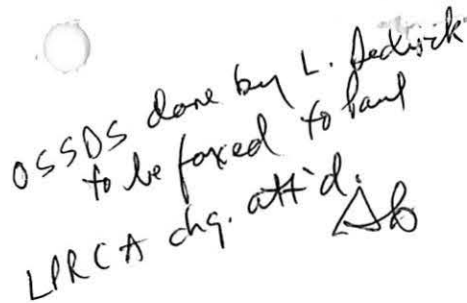 OSSDS done by L. Dedrick
to be faxed to Paul
LPRCA chq. att'd.